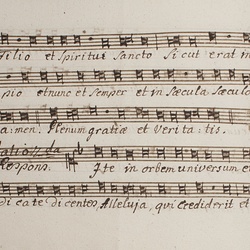 Filio et Spiritui Sancto Sicut erat in
pio et nunc et Semper et in Sæcula Sæculo
a: men. Plenum gratiæ et Verita: tis.
Respons. Ite in orbem universum e
di cate dicentes Alleluja, qui Crediderit e